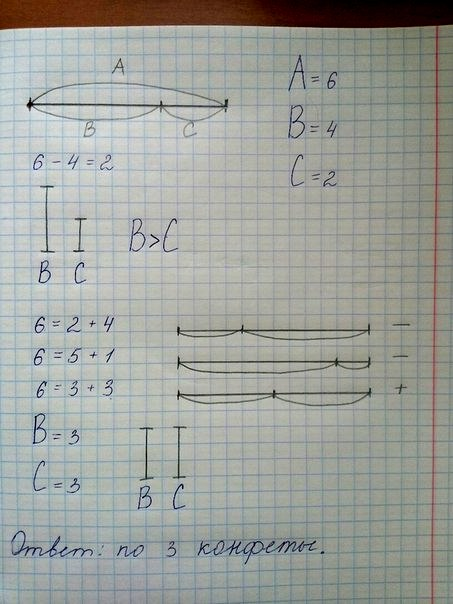 A
B C
A = 6
B = 4
C = 2
6 - 4 = 2
B C
B > C
6 = 2 + 4 —
6 = 5 + 1 —
6 = 3 + 3 +
B = 3
C = 3
B C
Ответ: по 3 конфеты.